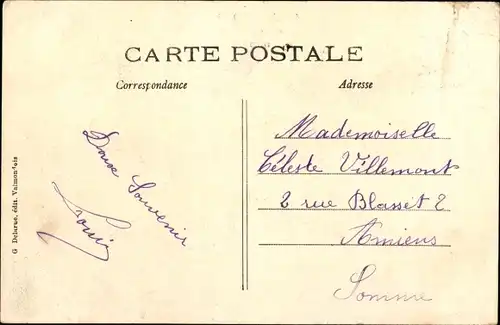 CARTE POSTALE
Correspondance
Adresse
G Delarue, édit. Valmondois
Doux Souvenir
Louis
Mademoiselle
Céleste Villemont
2 rue Blasset 2
Amiens
Somme